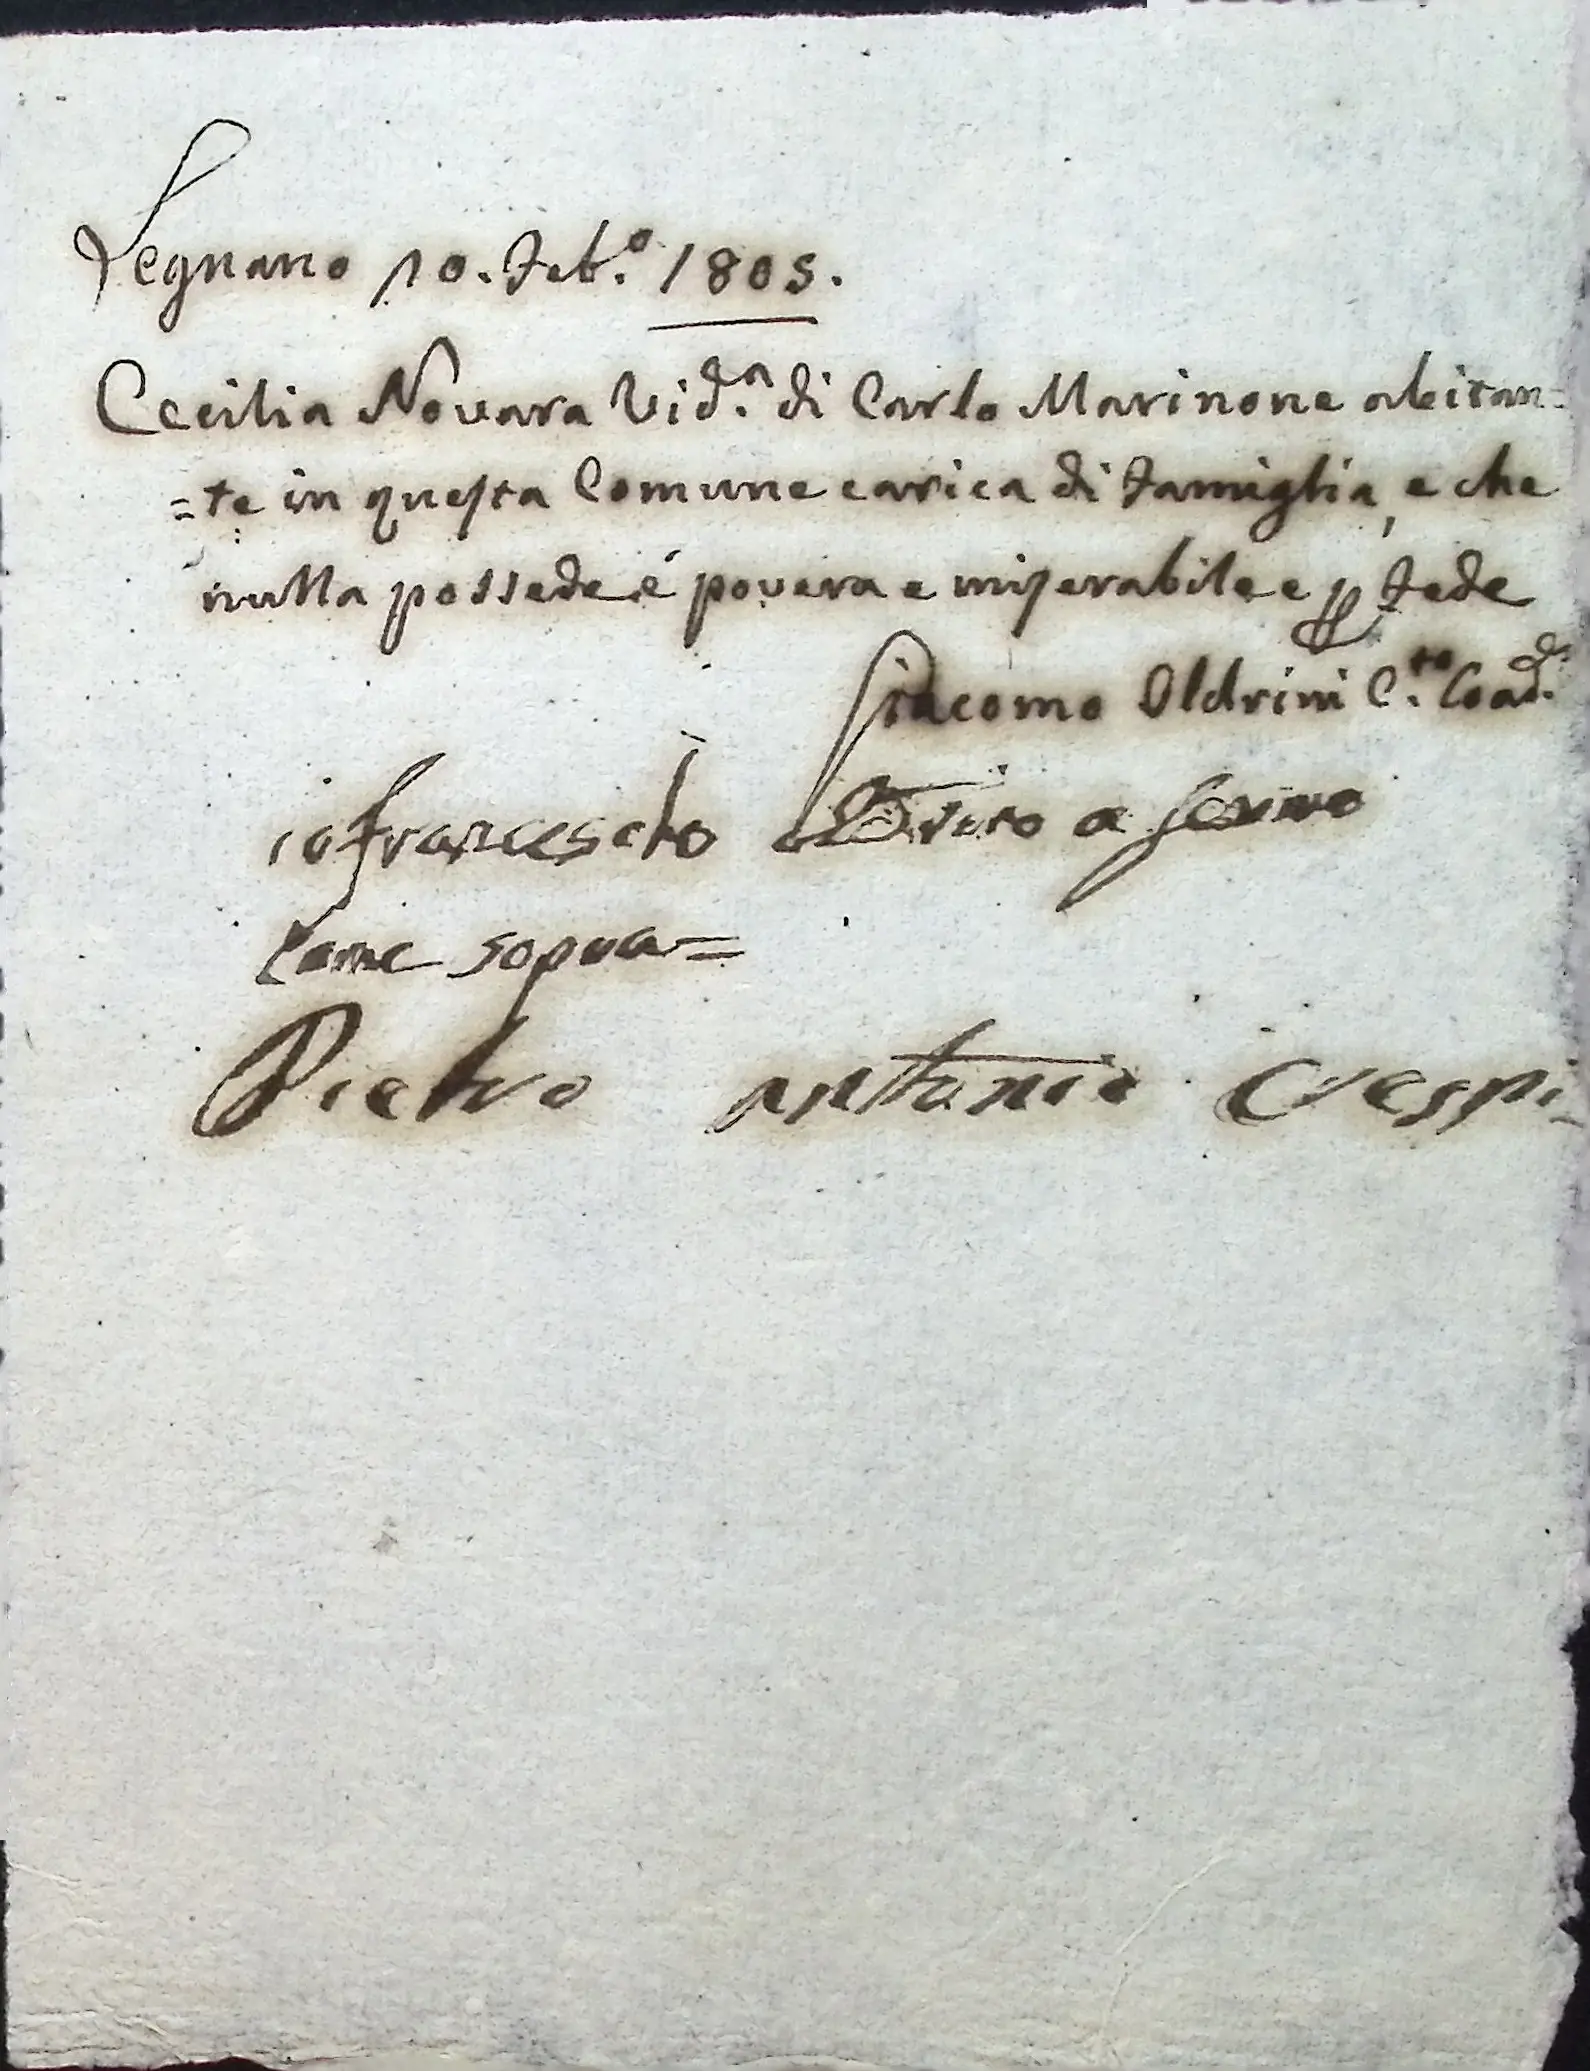 Legnano 10. Feb.º 1805.
Cecilia Novara Vid.ª di Carlo Marinone abitan=
=te in questa Comune carica di famiglia, e che
nulla possede é povera e miserabile e p fede
Giacomo Oldrini C.to Coad.
io francescho a fermo
Come sopra=
Pietro antonio Crespi